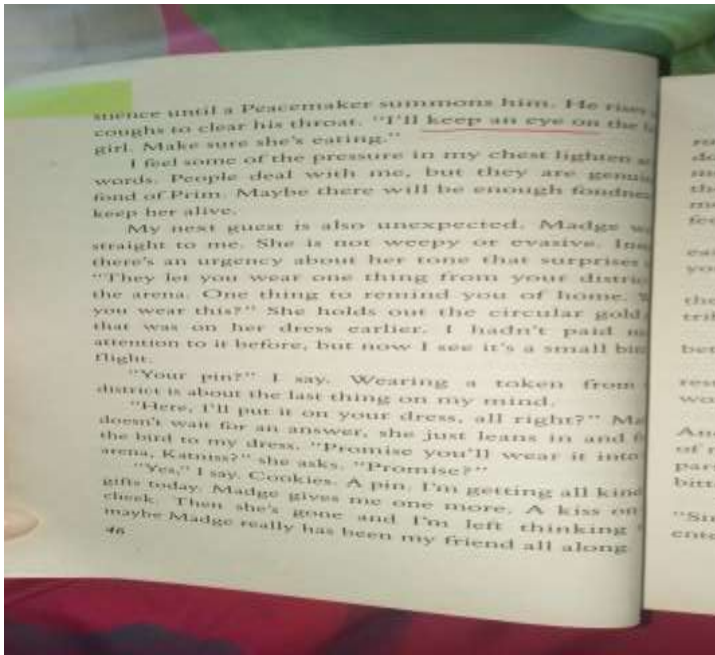 until a Peacemaker summons him. He rises
coughs to clear his throat. "I'll keep an eye on the
girl. Make sure she's eating."
I feel some of the pressure in my chest lighten
words. People deal with me, but they are
fond of Prim. Maybe there will be enough
keep her alive.
My next guest is also unexpected. Madge
straight to me. She is not weepy or evasive.
there's an urgency about her tone that surprises
"They let you wear one thing from your
the arena. One thing to remind you of home.
you wear this?" She holds out the circular gold
that was on her dress earlier. I hadn't paid
attention to it before, but now I see it's a small
flight.
"Your pin?" I say. Wearing a token from
district is about the last thing on my mind.
"Here, I'll put it on your dress, all right?"
doesn't wait for an answer, she just leans in and
the bird to my dress. "Promise you'll wear it into
arena, Katniss?" she asks. "Promise?"
"Yes," I say. Cookies. A pin. I'm getting all
gifts today. Madge gives me one more. A kiss on
cheek. Then she's gone and I'm left thinking
maybe Madge really has been my friend all along
46